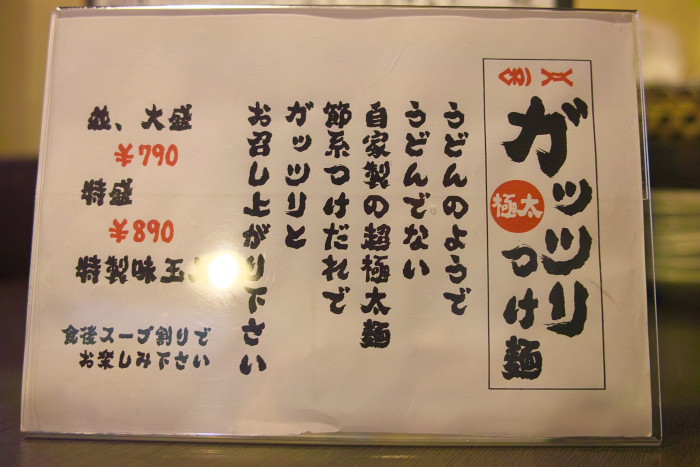 ガッツリ
極太
つけ麺
うどんのようで
うどんでない
自家製の超極太麺
節系つけだれで
ガッツリと
お召し上がり下さい
並、大盛
¥790
特盛
¥890
特製味玉
食後スープ割りで
お楽しみ下さい